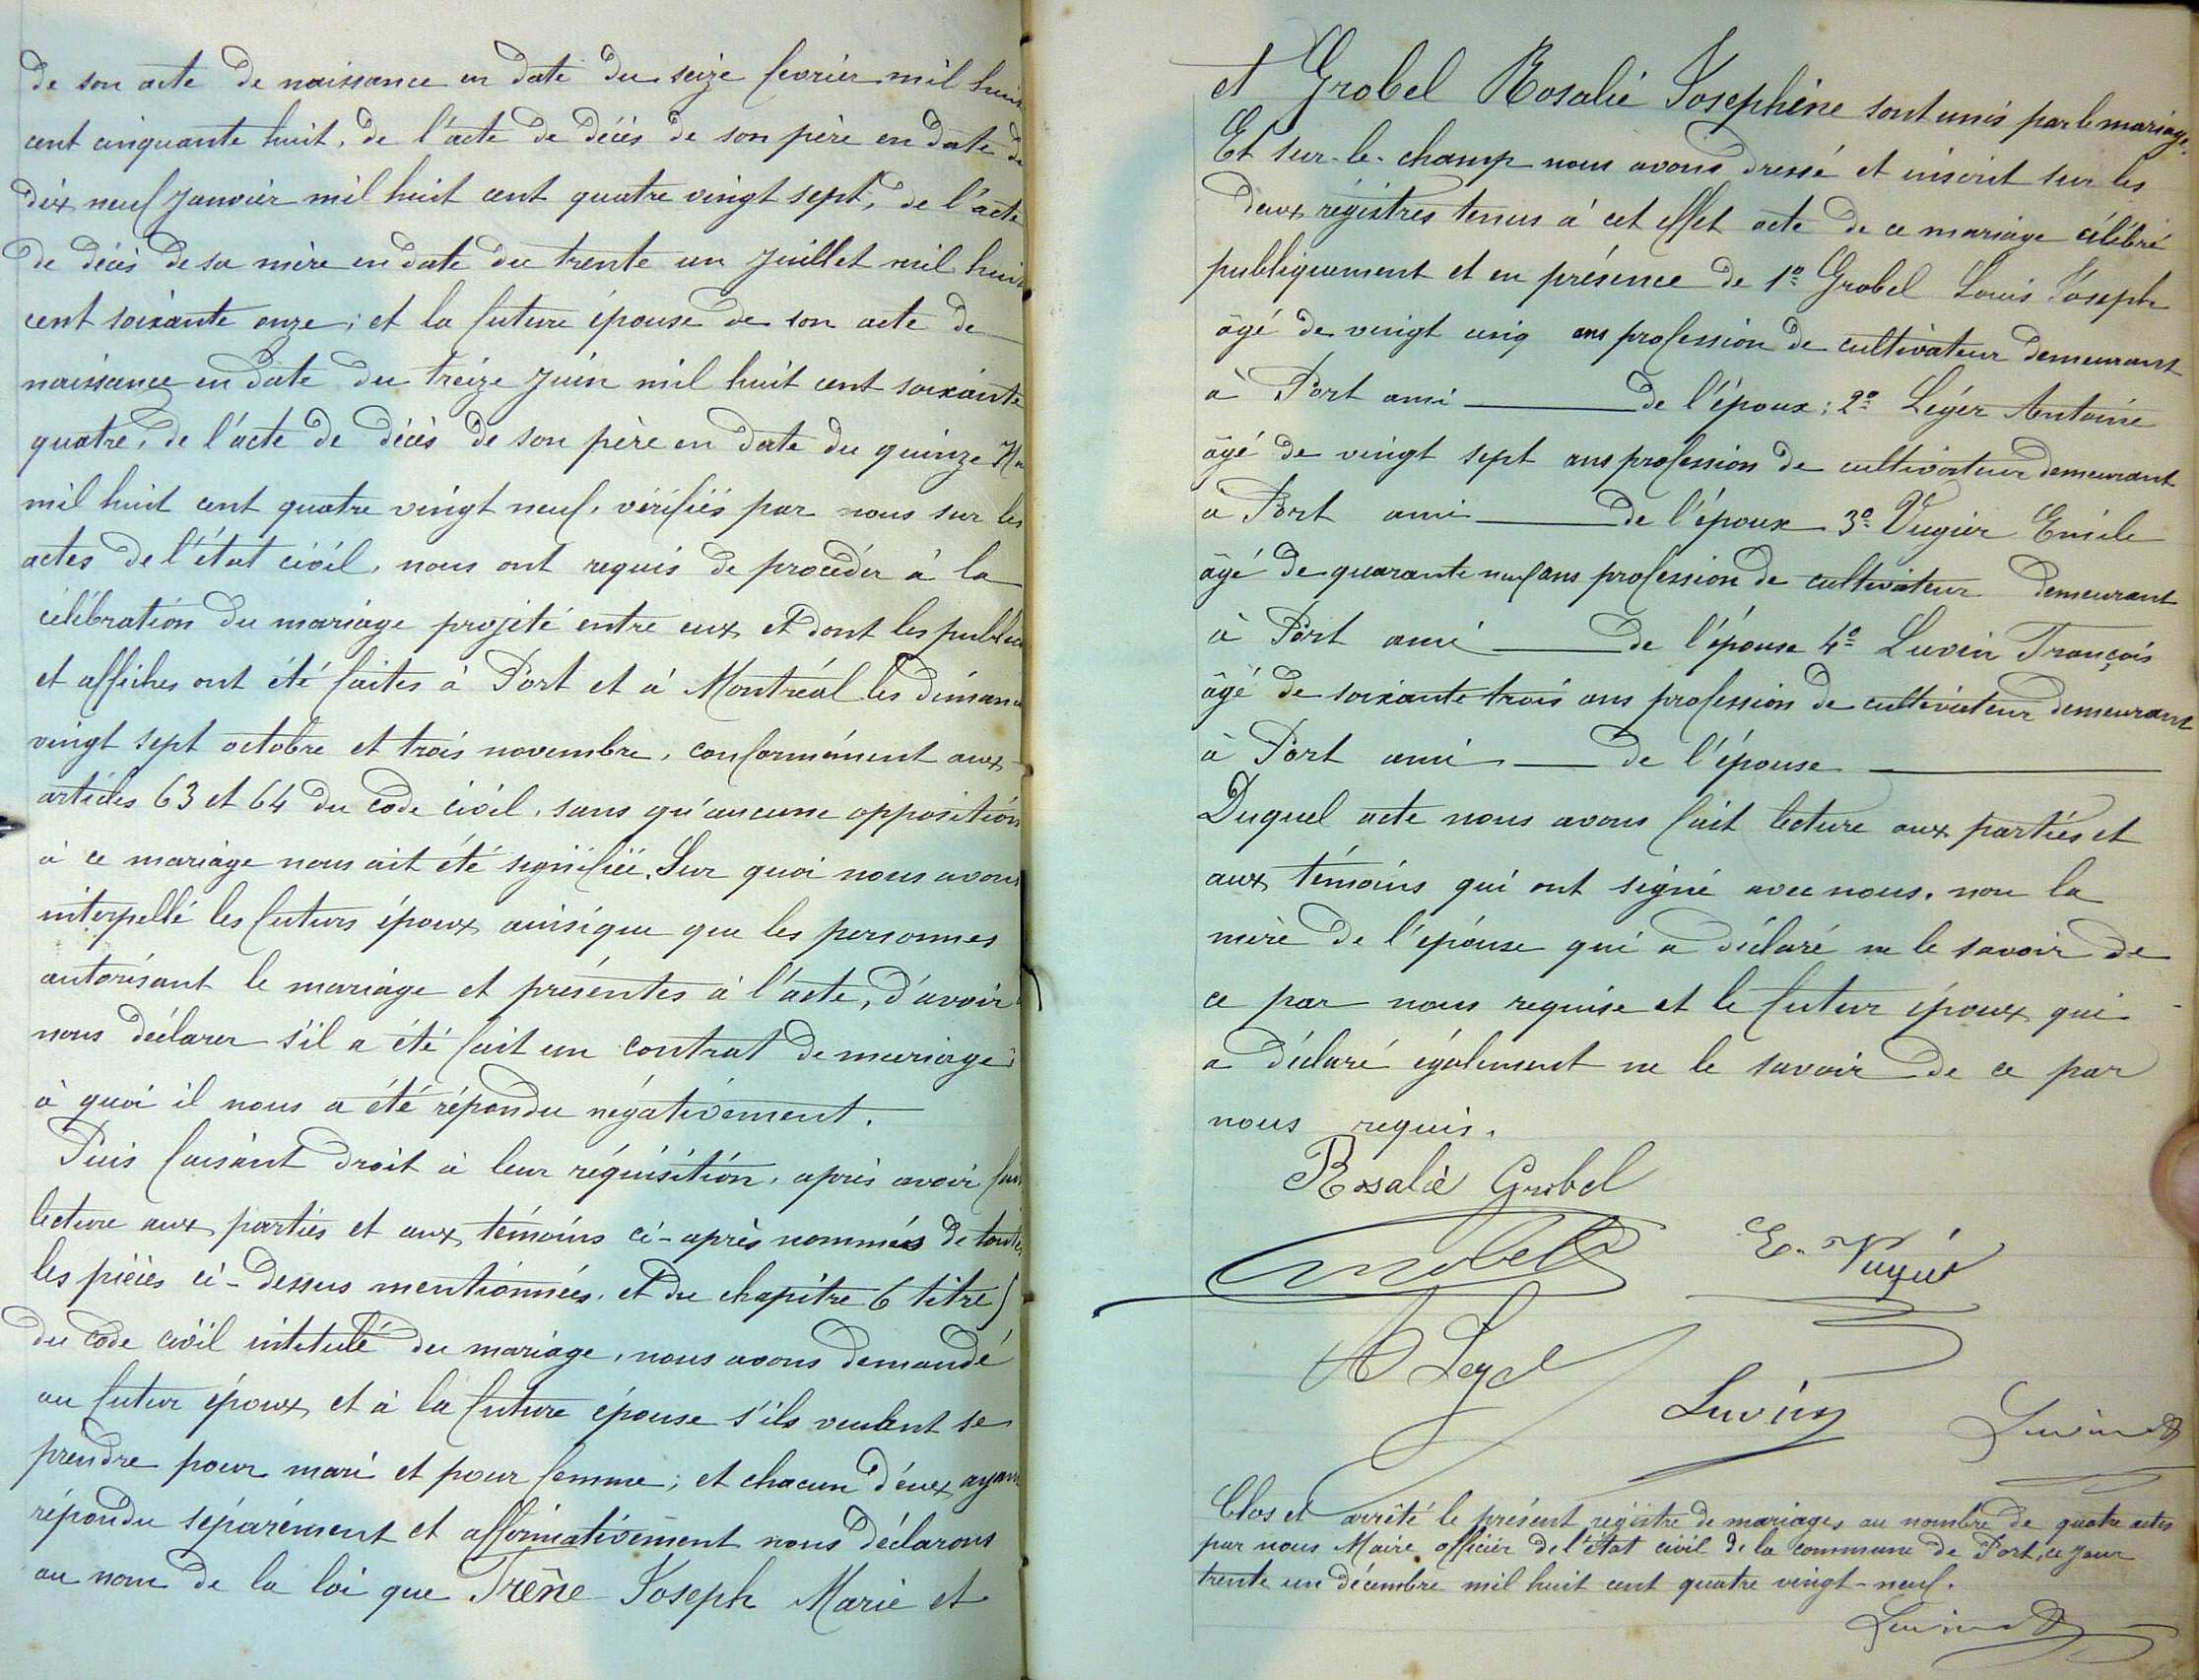 de son acte de naissance en date du seize fevrier mil huit
cent cinquante huit, de l'acte de décès de son père en date de
dix neuf Janvier mil huit cent quatre vingt sept, de l'acte
de décès de sa mère en date du trente un Juillet mil huit
cent soixante onze; et la future épouse de son acte de
naissance en date du treize Juin mil huit cent soixante
quatre, de l'acte de décès de son père en date du quinze
mil huit cent quatre vingt neuf, vérifiés par nous sur les
actes de l'état civil, nous ont requis de procéder à la
célébration du mariage projeté entre eux et dont les public
et affiches ont été faites à Port et à Montréal les diman
vingt sept octobre et trois novembre, conformément aux
articles 63 et 64 du code civil, sans qu'aucune opposition
à ce mariage nous ait été signifiée. Sur quoi nous avons
interpellé les futurs époux ainsi que que les personnes
autorisant le mariage et présentes à l'acte, d'avoir
nous déclarer s'il a été fait un contrat de mariage
à quoi il nous a été répondu négativement.
Puis faisant droit à leur réquisition, après avoir fait
lecture aux parties et aux témoins ci-après nommés de toutes
les pièces ci-dessus mentionnées, et du chapitre 6 titre 5
du code civil intitulé du mariage, nous avons demandé
au futur époux et à la future épouse s'ils veulent se
prendre pour mari et pour femme; et chacun d'eux ayant
répondu séparément et affirmativement nous déclarons
au nom de la loi que Trêne Joseph Marie et
et Grobel Rosalie Josephine sont unis par le mariage.
Et sur-le-champ nous avons dressé et inscrit sur les
deux régistres tenus à cet effet acte de ce mariage célébré
publiquement et en présence de 1º Grobel Louis Joseph
âgé de vingt cinq ans profession de cultivateur demeurant
à Port ami de l'époux; 2º Léger Antoine
âgé de vingt sept ans profession de cultivateur demeurant
à Port ami de l'époux 3º Vugier Emile
âgé de quarante neuf ans profession de cultivateur demeurant
à Port ami de l'épouse 4º Luvin François
âgé de soixante trois ans profession de cultivateur demeurant
à Port ami de l'épouse
Duquel acte nous avons fait lecture aux parties et
aux témoins qui ont signé avec nous, non la
mère de l'épouse qui a déclaré ne le savoir de
ce par nous requise et le futur époux qui
a déclaré également ne le savoir de ce par
nous requis.
Rosalie Grobel
Grobel E. Vugier
A Leger
Luvin
Clos et arrêté le présent régistre de mariages au nombre de quatre actes
par nous Maire officier de l'état civil de la commune de Port, ce jour
trente un décembre mil huit cent quatre vingt-neuf.